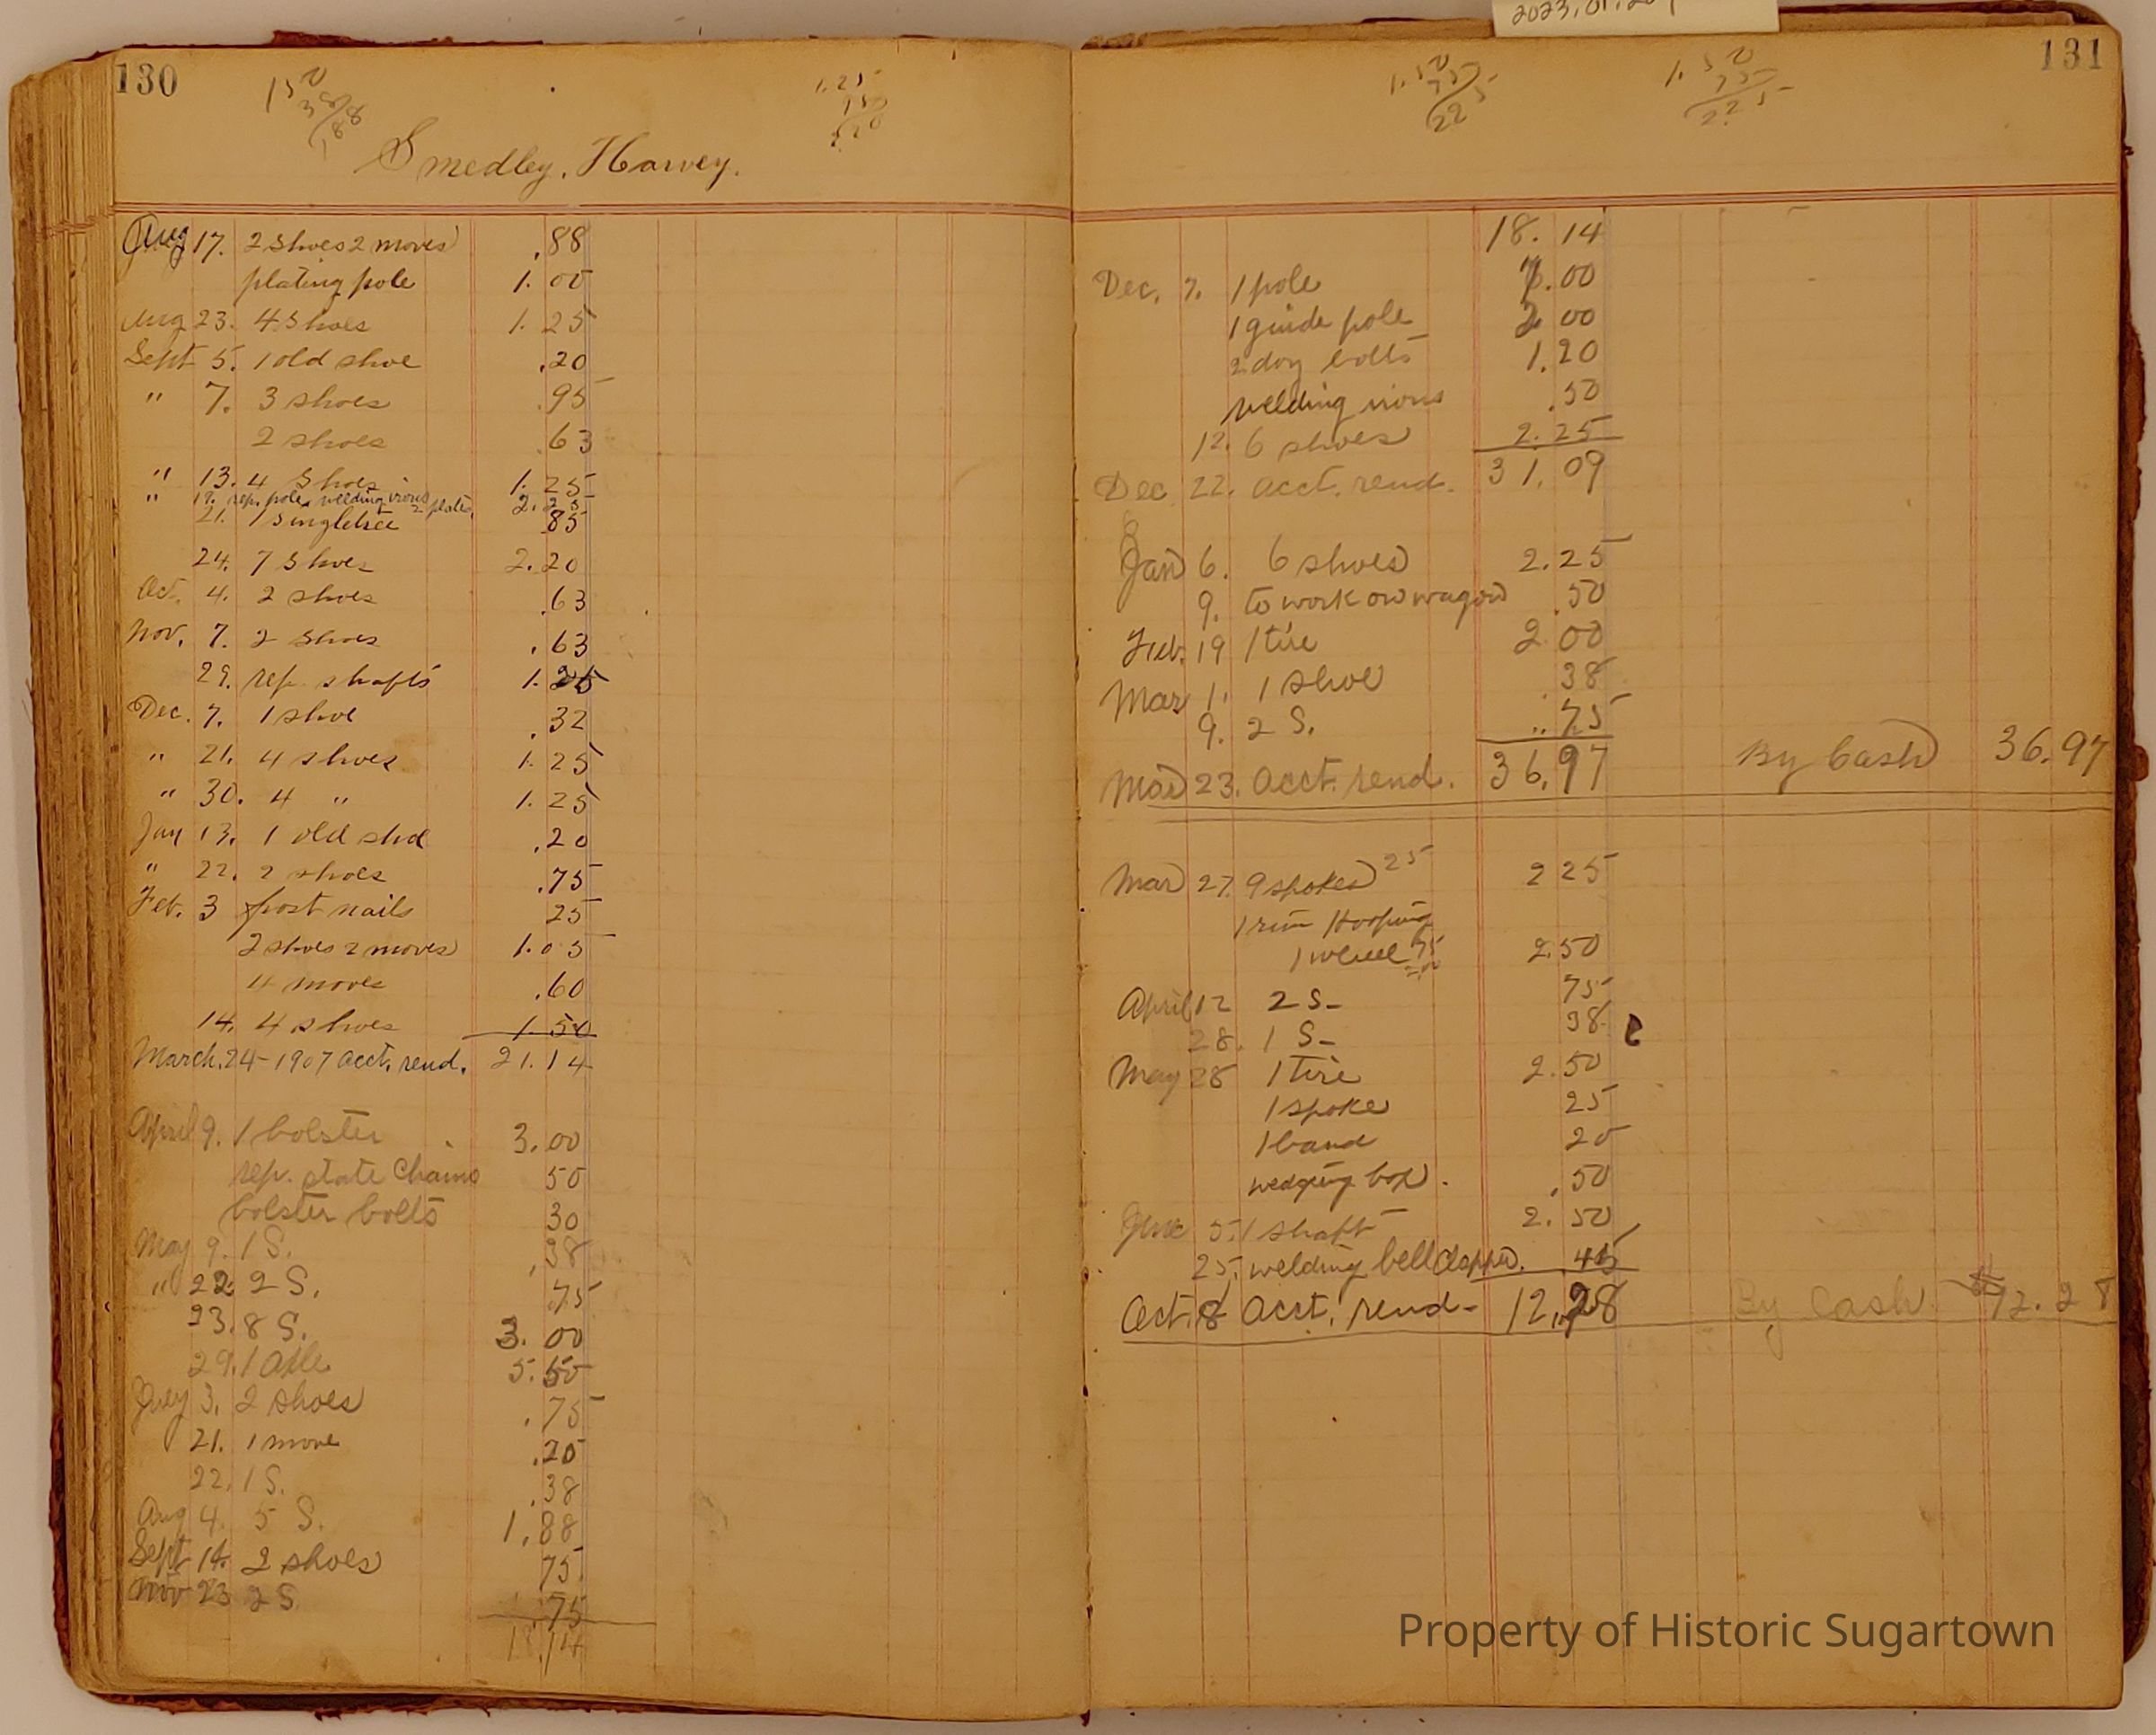 2023.01.20
130
1 50
38
1 88
1.25
Smedley, Harvey.
Aug 17. 2 Shoes 2 moves .88
plating pole 1.00
Aug 23. 4 Shoes 1.25
Sept 5. 1 old shoe .20
" 7. 3 shoes .95
2 shoes .63
" 13. 4 Shoes 1.25
" rep. pole, welding irons 2 plates.
21. 1 Singletree .85
24. 7 Shoes 2.20
Oct. 4. 2 shoes .63
Nov. 7. 2 Shoes .63
29. rep. shafts 1.25
Dec. 7. 1 shoe .32
" 21. 4 shoes 1.25
" 30. 4 " 1.25
Jan 13. 1 old shoe .20
" 22. 2 shoes .75
Feb. 3 frost nails 25
2 shoes 2 moves 1.05
4 moves .60
14. 4 shoes 1.50
March. 24-1907 Acct. rend. 21.14
April 9. 1 bolster 3.00
rep. state Chains 50
bolster bolts 30
May 9. 1 S. .38
" 22 2 S. .75
23. 8 S. 3.00
29. 1 axle 5.50
July 3. 2 shoes .75
21. 1 move .20
22. 1 S. .38
Aug 4. 5 S. 1.88
Sept 14. 2 shoes 75
Nov 23 2 S. .75
18.14
131
1.50
75
2 25
1.50
75
2.25
18.14
Dec. 7. 1 pole 7.00
1 guide pole 2 00
2 dog bolts 1.20
welding irons .50
12. 6 shoes 2.25
Dec 22. Acct. rend. 31.09
Jan 6. 6 shoes 2.25
9. to work on wagon .50
Feb. 19 1 tire 2 00
Mar 1. 1 shoe .38
9. 2 S. .75
Mar 23. Acct. rend. 36.97 By Cash 36.97
Mar 27. 9 spokes 25 2 25
1 rim Hooping
1 wheel 75 2.50
April 12 2 S- 75
28. 1 S- 38
May 28 1 Tire 2.50
1 spoke 25
1 band 20
wedging box. .50
June 5. 1 shaft 2.50
25. welding bell Clapper. 45
Oct. 8 Acct. rend- 12.28 By Cash $12.28
Property of Historic Sugartown